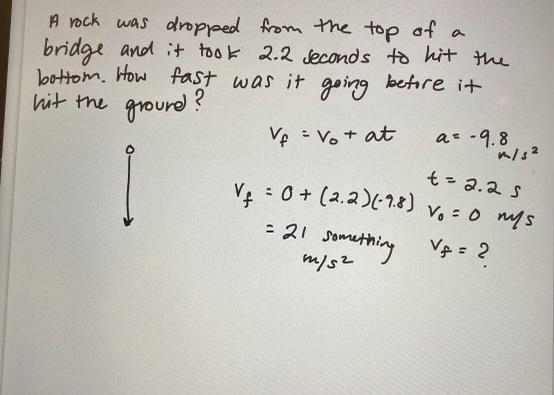 A rock was dropped from the top of a
bridge and it took 2.2 seconds to hit the
bottom. How fast was it going before it
hit the ground?
Vf = Vo + at
a = -9.8 m/s²
t = 2.2 s
Vf = 0 + (2.2)(-9.8)
Vo = 0 m/s
= 21 something
m/s²
Vf = ?